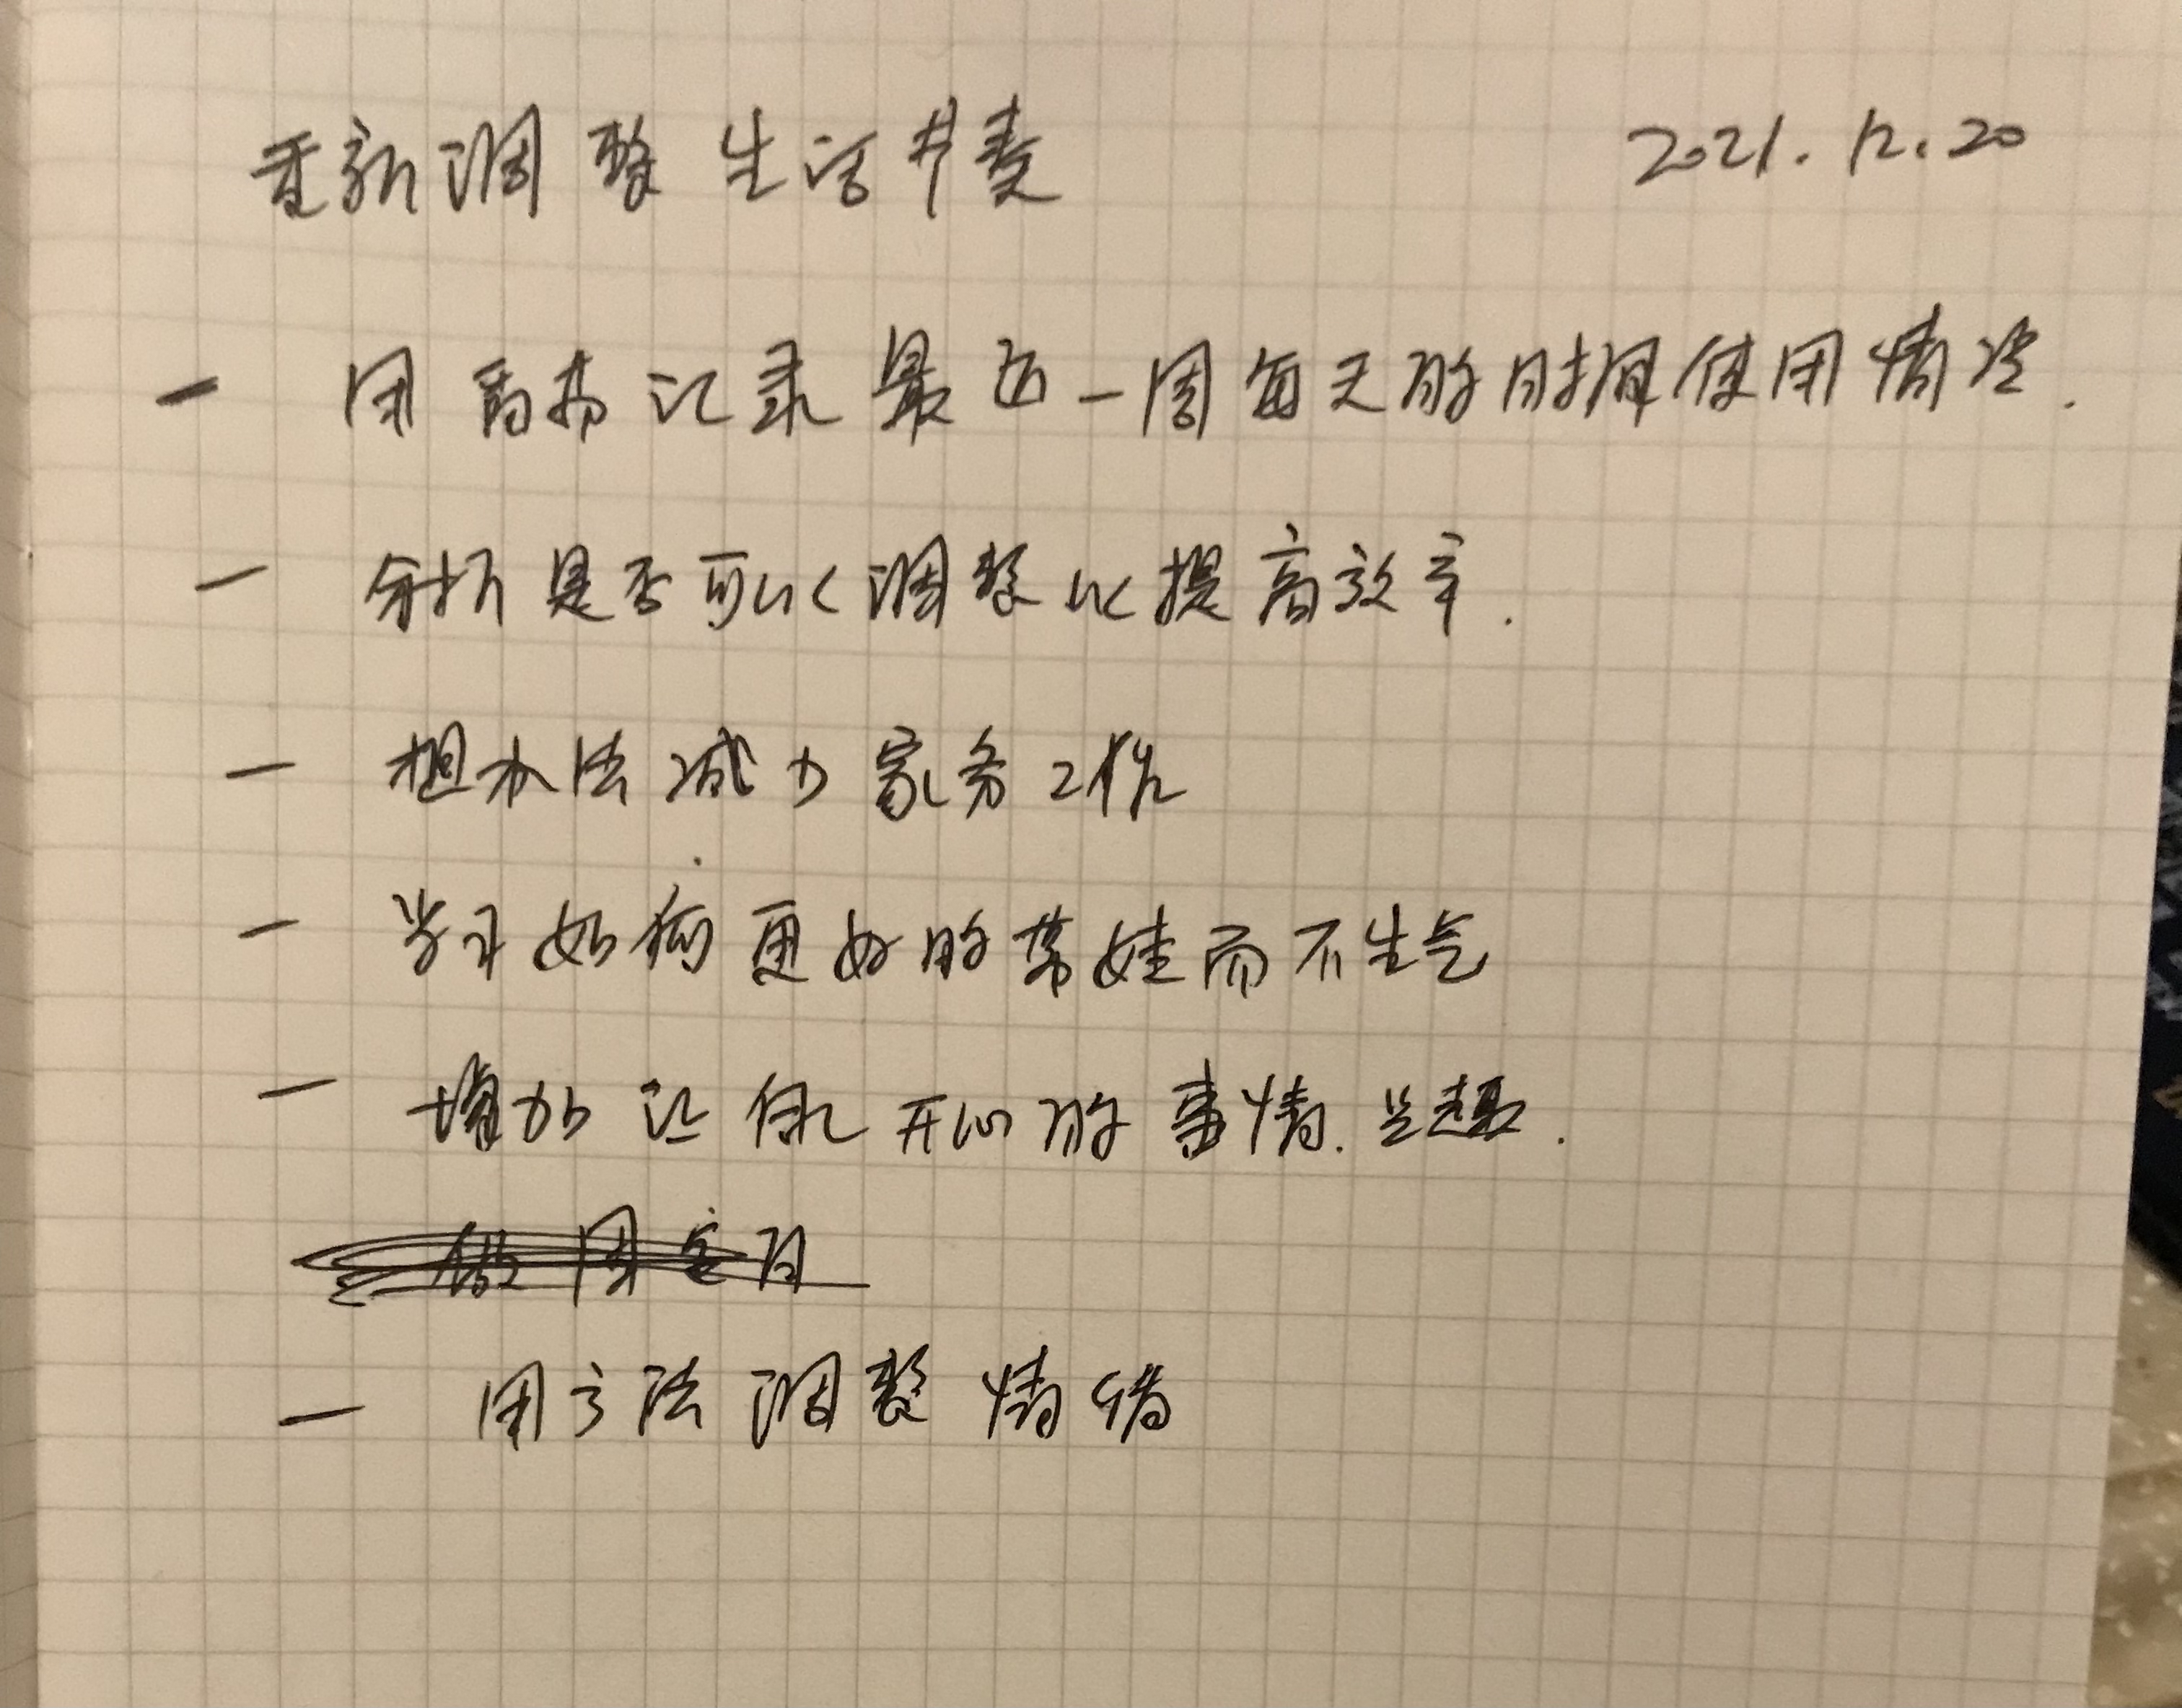 重新调整生活节奏 2021.12.20
- 用 记录最近一周每天的时间使用情况.
- 分析是否可以调整以提高效率.
- 想办法减少家务工作
- 学习如何更好的带娃而不生气
- 增加让 开心的事情.兴趣.
- 用方法调整情绪